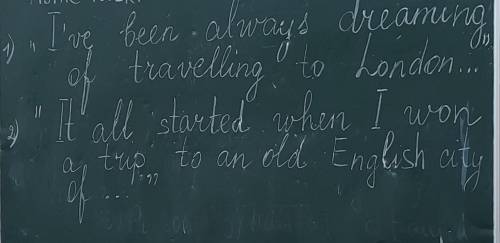 1) "I've been always dreaming
of travelling to London..."
2) "It all started when I won
a trip to an old English city
of ..."